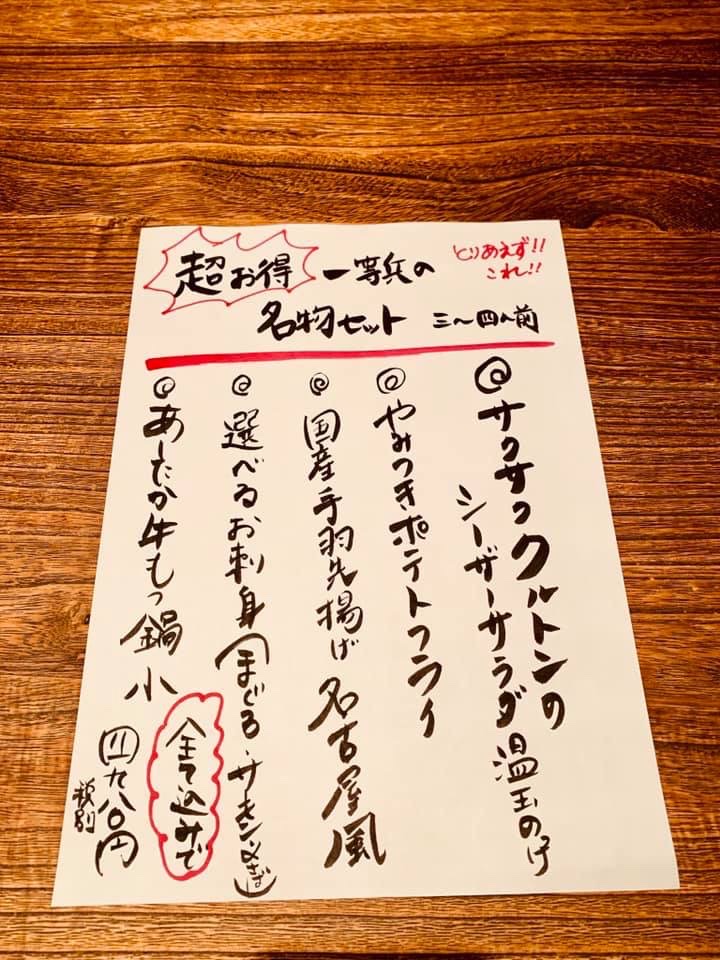 超お得 一等兵の
名物セット 三〜四人前
とりあえず!!
これ!!
◎サクサククルトンの
シーザーサラダ 温玉のっけ
◎やみつきポテトフライ
◎国産手羽先揚げ 名古屋風
◎選べるお刺身(まぐろ・サーモン・〆さば)
◎あしたか牛もつ鍋 小
全て込みで
四九八〇円
税別